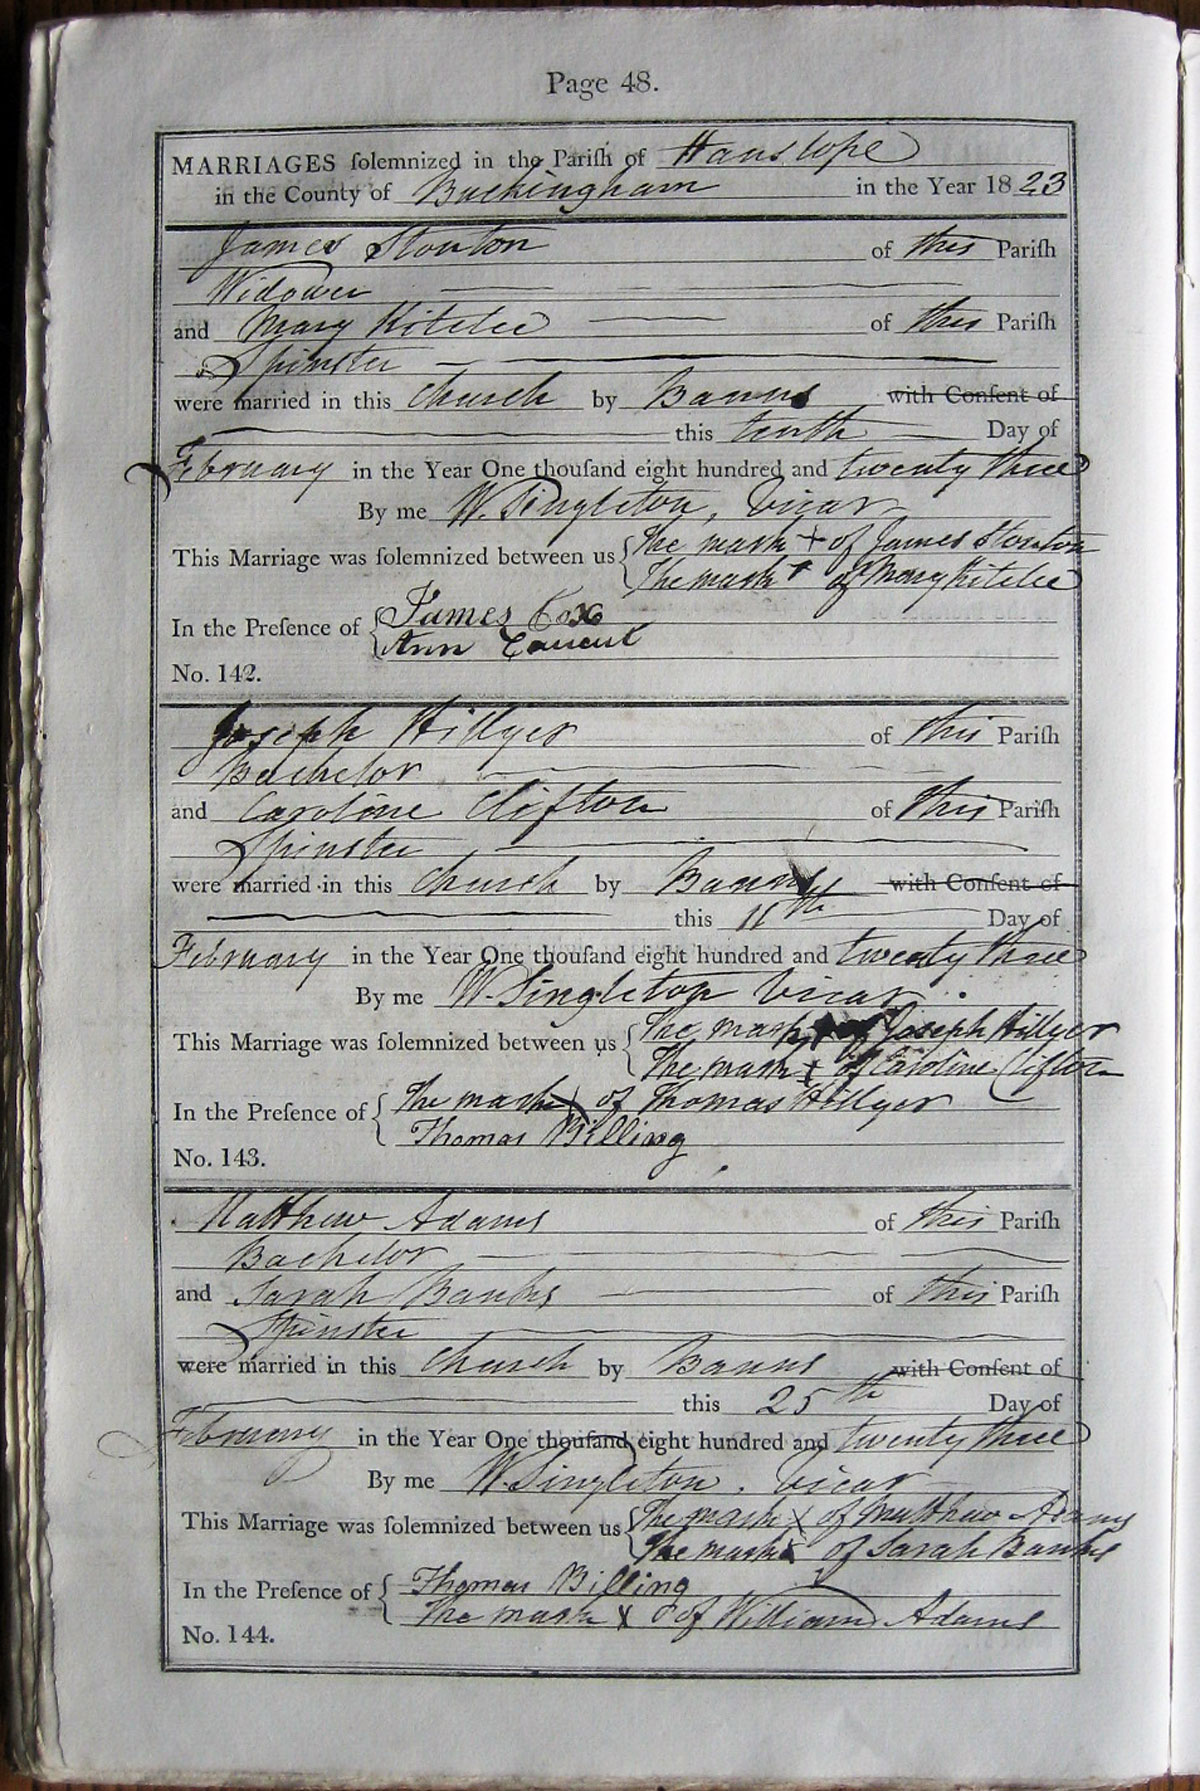 Page 48.
MARRIAGES ſolemnized in the Pariſh of Hanslope
in the County of Buckingham in the Year 1823
James Stonton of this Pariſh
Widower
and Mary Kitelee of this Pariſh
Spinster
were married in this Church by Banns with Conſent of
this tenth Day of
February in the Year One thouſand eight hundred and twenty three
By me W. Singleton, Vicar
This Marriage was ſolemnized between us The mark + of James Stonton
The mark + of Mary Kitelee
In the Preſence of James Cox
Ann
No. 142.
Joseph Hillyer of this Pariſh
Bachelor
and Caroline Clifton of this Pariſh
Spinster
were married in this Church by Banns with Conſent of
this 11th Day of
February in the Year One thouſand eight hundred and twenty three
By me W. Singleton Vicar
This Marriage was ſolemnized between us The mark of Joseph Hillyer
The mark + of Caroline Clifton
In the Preſence of The mark X of Thomas Hillyer
Thomas Billing
No. 143.
Matthew Adams of this Pariſh
Bachelor
and Sarah Banks of this Pariſh
Spinster
were married in this Church by Banns with Conſent of
this 25th Day of
February in the Year One thouſand eight hundred and twenty three
By me W. Singleton, Vicar
This Marriage was ſolemnized between us The mark X of Matthew Adams
The mark X of Sarah Banks
In the Preſence of Thomas Billing
The mark X of William Adams
No. 144.